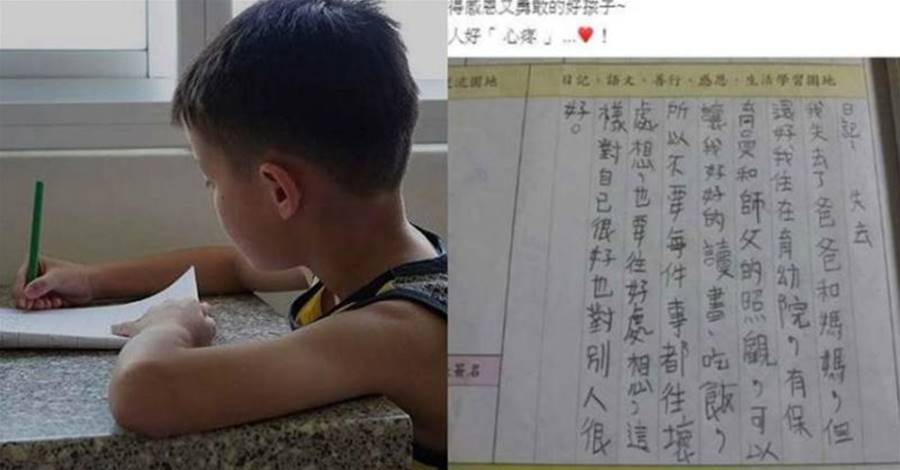 得感恩又勇敢的好孩子~
人好「心疼」...❤！
流園地
日記‧語文‧善行‧感恩‧生活學習園地
日記： 失去
我失去了爸爸和媽媽，但
還好，我住在育幼院，有保
育員和師父的照顧，可以
讓我好好的讀書、吃飯，
所以不要每件事都往壞
處想，也要往好處想，這
樣對自己很好也對別人很
好。
簽名